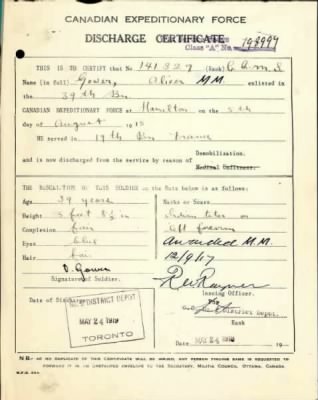 CANADIAN EXPEDITIONARY FORCE
DISCHARGE CERTIFICATE
Class "A" No. 198997
THIS IS TO CERTIFY that No 141827 (Rank) C.Q.M.S
Name (in full) Gower, Oliver M.M. enlisted in
the 39th Bn.
CANADIAN EXPEDITIONARY FORCE at Hamilton on the 5th
day of August 1915
HE served in 19th Bn France
and is now discharged from the service by reason of Demobilization.
Medical Unfitness.
THE DESCRIPTION OF THIS SOLDIER on the Date below is as follows:
Age 39 years
Height 5 feet 8½ in
Complexion fair
Eyes blue
Hair fair
Marks or Scars
left forearm
Awarded M.M.
12/9/17
O. Gower
Signature of Soldier.
Issuing Officer.
Rank
Date of Discharge
DISTRICT DEPOT
MAY 24 1919
TORONTO
MAY 24 1919 19
N.B.- AS NO DUPLICATE OF THIS CERTIFICATE WILL BE ISSUED, ANY PERSON FINDING SAME IS REQUESTED TO
FORWARD IT IN AN UNSTAMPED ENVELOPE TO THE SECRETARY, MILITIA COUNCIL, OTTAWA, CANADA.